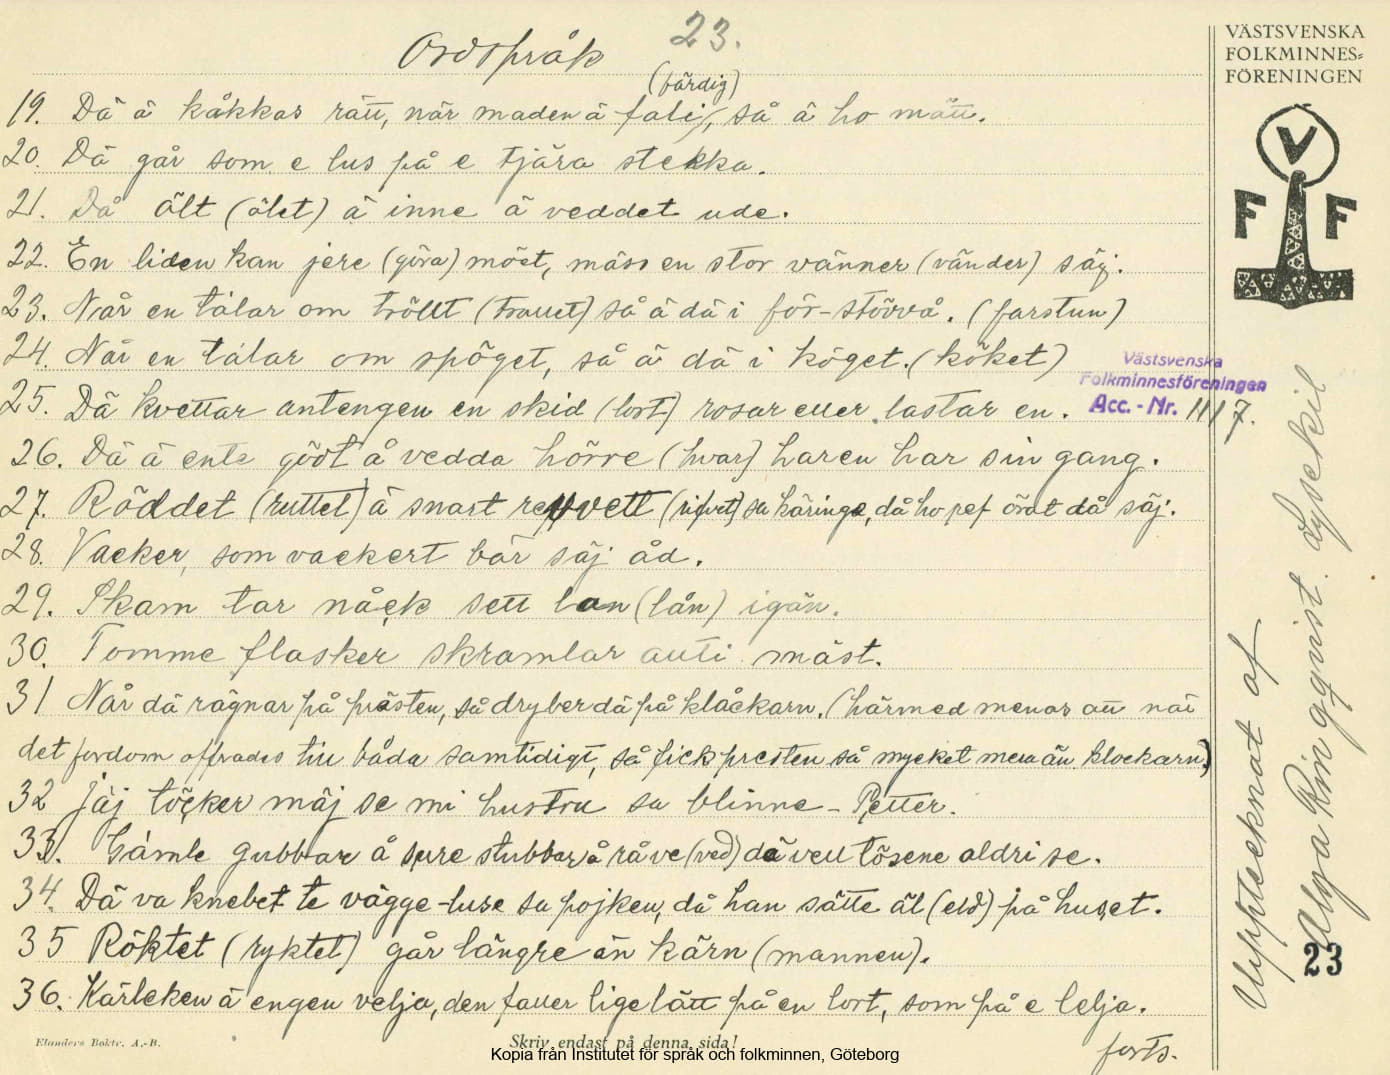 Ordspråk 23.
VÄSTSVENSKA
FOLKMINNES-
FÖRENINGEN
V
F F
(färdig)
19. Dä ä kåkkas rätt, när maden ä fali, så ä ho mätt.
20. Dä går som e lus på e tjära stekka.
21. Då ält (ölet) ä inne ä veddet ude.
22. En liden kan jere (göra) möet, mäss en stor vänner (vänder) säj.
23. Når en tálar om tröllt (trollet) så ä dä i för-stövvå. (farstun)
24. Når en tálar om spöget, så ä dä i köget. (köket)
Västsvenska
Folkminnesföreningen
Acc. - Nr. 1117.
25. Dä kvettar antengen en skid (lort) rosar eller lastar en.
26. Dä ä ente gödt å vedda hörre (hvar) haren har sin gang.
27. Röddet (ruttet) ä snart revvett (rifvet) sa käringa, då ho pef örat då säj.
28. Vacker, som vackert bär säj åd.
29. Skam tar nåck sett lan (lån) igän.
30. Tomme flasker skramlar allti mäst.
31 Når dä rägnar på prästen, så dryber dä på klåckarn. (härmed menas att när
det fordom offrades till båda samtidigt, så fick presten så mycket mera än klockarn)
32 Jäj töcker mäj se mi hustru sa blinne-Petter.
33. Gámle gubbar å sure stubbar å rå ve (ved) dä vell tösene aldri se.
34. Dä va knebet te vägge-luse sa pojken, då han sätte äl (eld) på huset.
35 Röktet (ryktet) går längre än kärn (mannen).
36. Kärleken ä engen velja, den faller lige lätt på en lort, som på e lelja.
forts.
Elanders Boktr. A.-B.
Skriv endast på denna sida!
Kopia från Institutet för språk och folkminnen, Göteborg
Upptecknat af
Alga Ringqvist. Lysekil
23